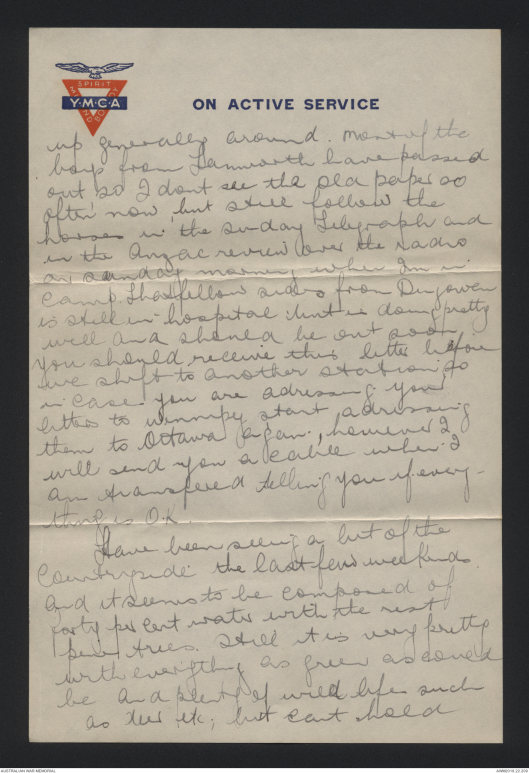 SPIRIT
MIND
BODY
Y·M·C·A
ON ACTIVE SERVICE
up generally around. Most of the
boys from Tamworth have passed
out so I dont see the old paper so
often now, but still follow the
horses in the Sunday Telegraph and
in the Anzac review over the radio
on sunday morning when I'm in
Camp. That fellow from Dungowan
is still in hospital but is doing pretty
well and should be out soon,
You should receive this letter before
we shift to another station so
in case you are adressing your
letters to winnipy start adressing
them to Ottawa again, however I
will send you a cable when I
am transfered telling you if every-
thing is O.K.
Have been seeing a bit of the
Countryside the last few weekends
and it seems to be composed of
forty per cent water with the rest
pine trees. Still it is very pretty
with everything as green as could
be and plenty of wild life such
as deer etc; but cant hold
AUSTRALIAN WAR MEMORIAL